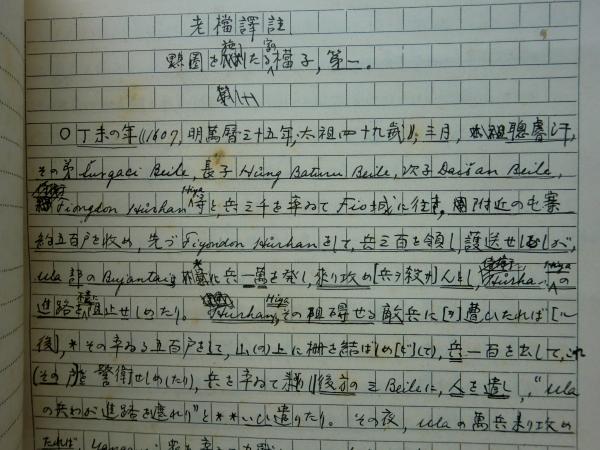 老檔譯註
點圈を施したる字檔子,第一。
第(一)
〇丁未の年《1607,明萬曆三十五年,太祖四十九歲》,三月,太祖聰睿汗,
その弟 Šurgaci Beile, 長子 Hūng Baturu Beile, 次子 Daišan Beile,
Fiongdon Hūrhan Hiya 等と兵三千を率ゐて Fio城に往き,附近の屯寨
約五百戸を收め,先づ Fiyondon Hūrhan をして,兵三百を領し,護送せしむしが,
Ula 部の Bujantai は 兵一萬を発し,乘り攻め[兵ヲ殺か]んとし, Hūrhan Hiya の
進路を阻止せしめたり。 Hūrhan Hiya その阻碍せる敵兵に[ヲ]曹いたれば[ル
後],*その率ゐる五百戸をして,山(の)上に柵を結ばしめ[ど](して),兵一百を出して,これ
(その戸)を警衛せしめ(たり),兵を率ゐて 後方の三 Beile に,人を遣し,“Ula
の兵わが進路を遮れり”と**いひ遣りたり。その夜,Ula の萬兵乘り攻め
たれば,